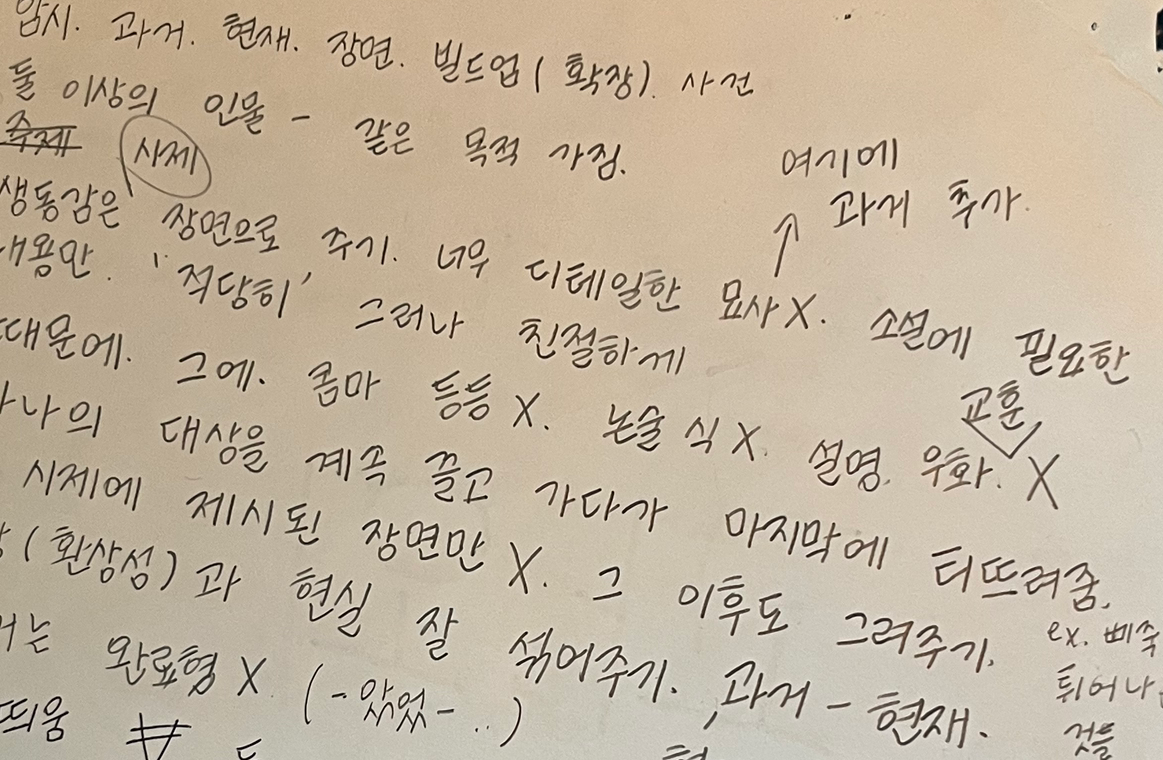 암시. 과거. 현재. 장면. 빌드업(확장). 사건
둘 이상의 인물 - 같은 목적 가짐.
주제 시제
여기에
과거 추가.
생동감은 장면으로 주기. 너무 디테일한 묘사X. 소설에 필요한
내용만. '적당히' 그러나 친절하게
때문에. 그에. 콤마 등등 X. 논술 식 X. 설명. 우화. X
교훈
하나의 대상을 계속 끌고 가다가 마지막에 터뜨려줌.
시제에 제시된 장면만 X. 그 이후도 그려주기.
(환상성)과 현실 잘 섞어주기. 과거 - 현재.
ex. 삐죽
튀어나
것을
완료형 X (-았었- ..)
띄움